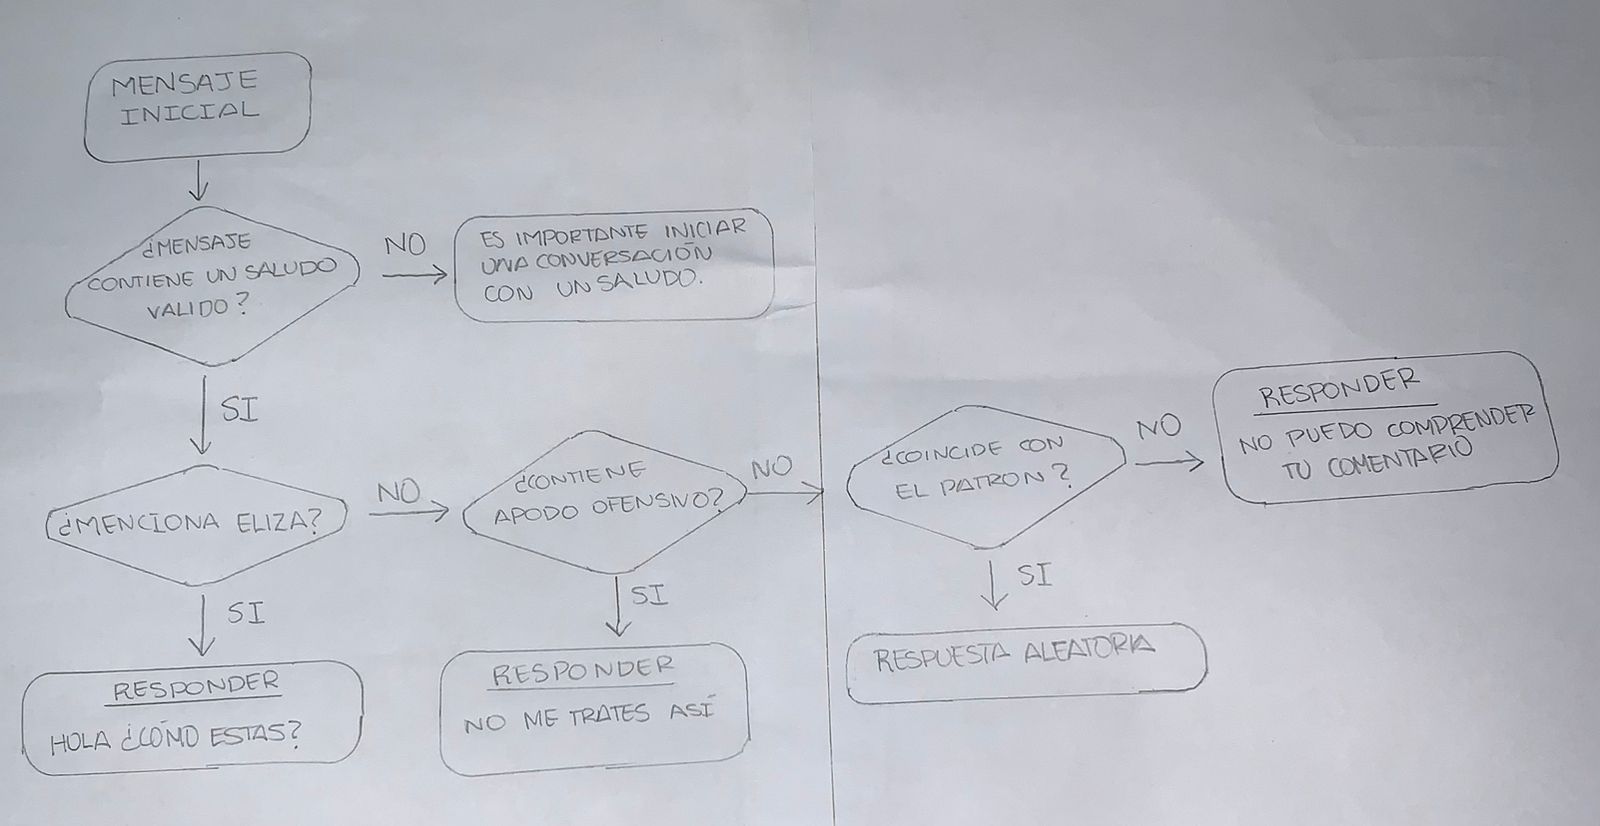 MENSAJE
INICIAL
¿MENSAJE
CONTIENE UN SALUDO
VALIDO?
NO
ES IMPORTANTE INICIAR
UNA CONVERSACIÓN
CON UN SALUDO.
SI
¿MENCIONA ELIZA?
NO
¿CONTIENE
APODO OFENSIVO?
NO
¿COINCIDE CON
EL PATRON?
NO
RESPONDER
NO PUEDO COMPRENDER
TU COMENTARIO
SI
RESPONDER
HOLA ¿CÓMO ESTAS?
SI
RESPONDER
NO ME TRATES ASÍ
SI
RESPUESTA ALEATORIA